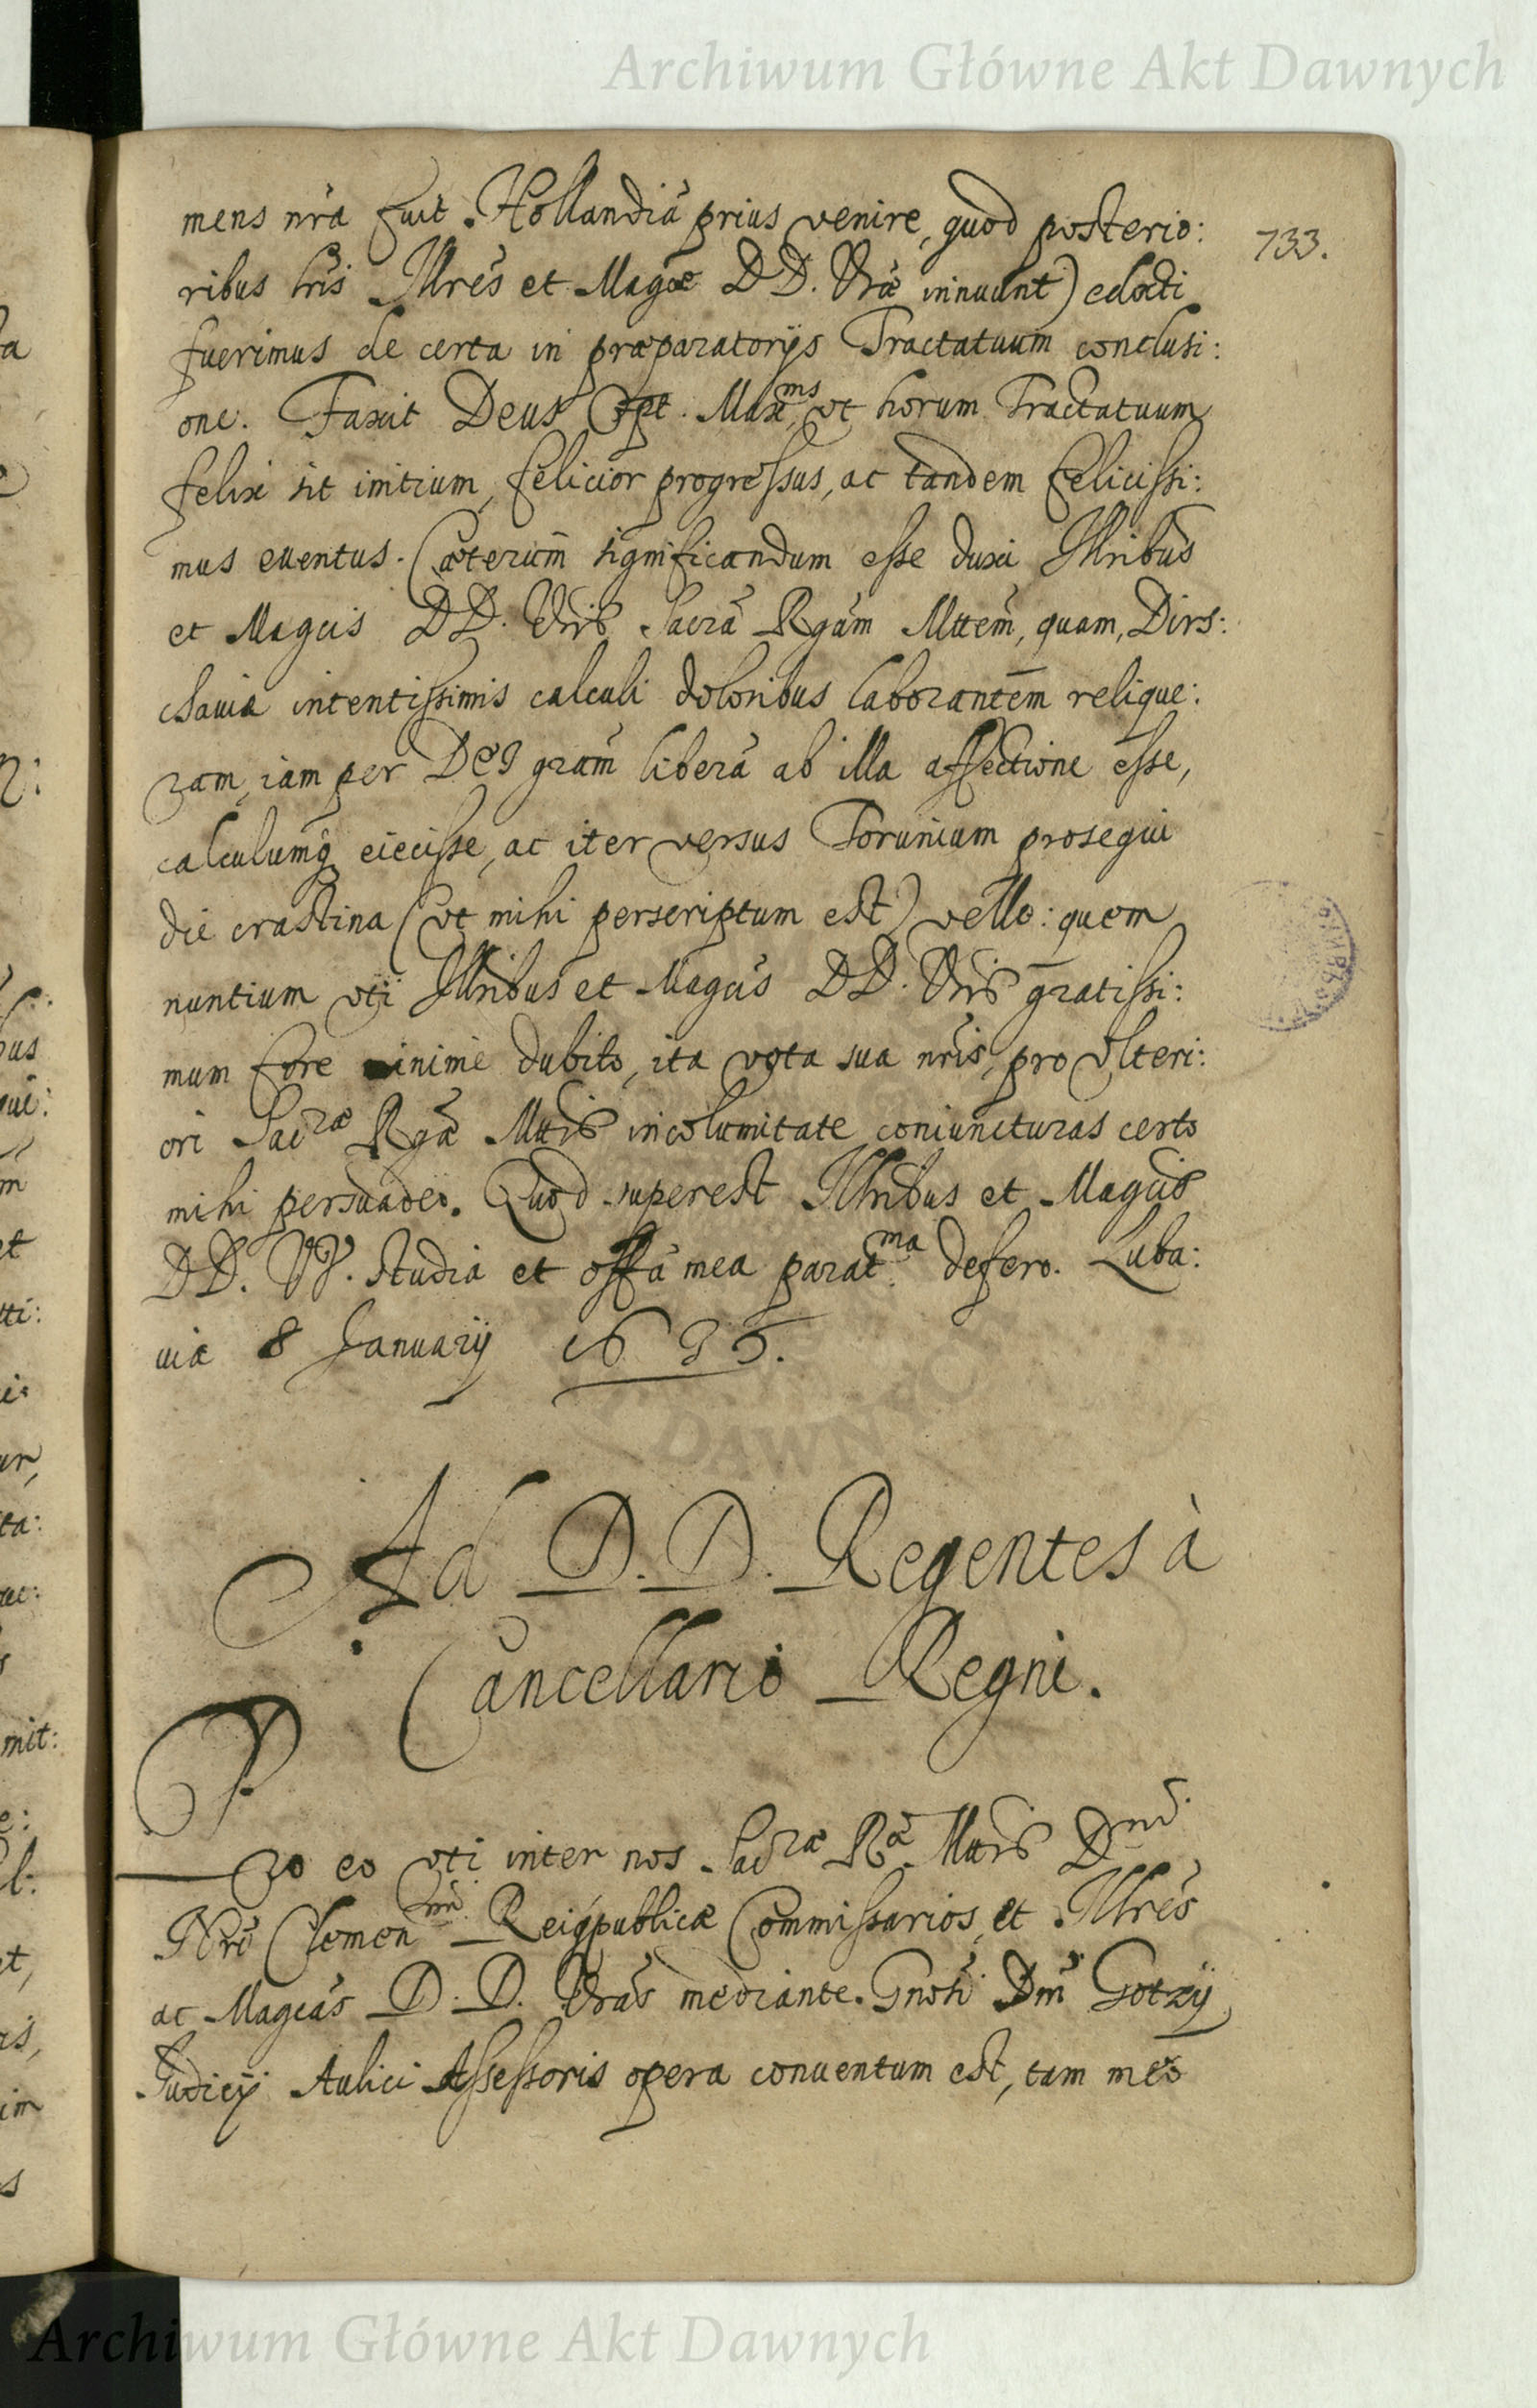 Archiwum Główne Akt Dawnych
733.
mens nrã fuit Hollandiã prius venire, quod posterio:
ribus lris Illres et Magcæ DD. Vræ innuunt) edocti
fuerimus de certa in præparatorijs Tractatuum conclusi:
one. Faxit Deus Opt. Maxms, vt horum Tractatuum
felix sit initium, felicior progressus, ac tandem felicissi:
mus euentus. Cæterum significandum esse duxi Illribus
et Magcis DD. Vris Sacrã Rgãm Mttem, quam, Dirs:
chauia intentissimis calculi doloribus laborantem relique:
ram, iam per DEI gram liberã ab illa affectione esse,
calculumq eiecisse, ac iter versus Torunium prosequi
die crastina (vt mihi perscriptum est) velle: quem
nuntium vti Illribus et Magcis DD. Vris gratissi:
mum fore minime dubito, ita vota sua nris, pro vlteri:
ori Sacræ Rgæ Mttis incolumitate coniuncturas certo
mihi persuadeo. Quod superest Illribus et Magcis
DD. VV. studia et offa mea paratma defero. Luba:
uiæ 8 Januarij 1635.
Ad D. D. Regentes à
Cancellario Regni.
Pro eo vti inter nos Sacræ Ræ Mttis Dni
Nri Clemenmi Reiqpublicæ Commissarios, et Illres
ac Magcas D. D. Vras mediante Gnosi Dni Gotzij
Judicij Aulici Assessoris opera conuentum est, tam meo
Archiwum Główne Akt Dawnych